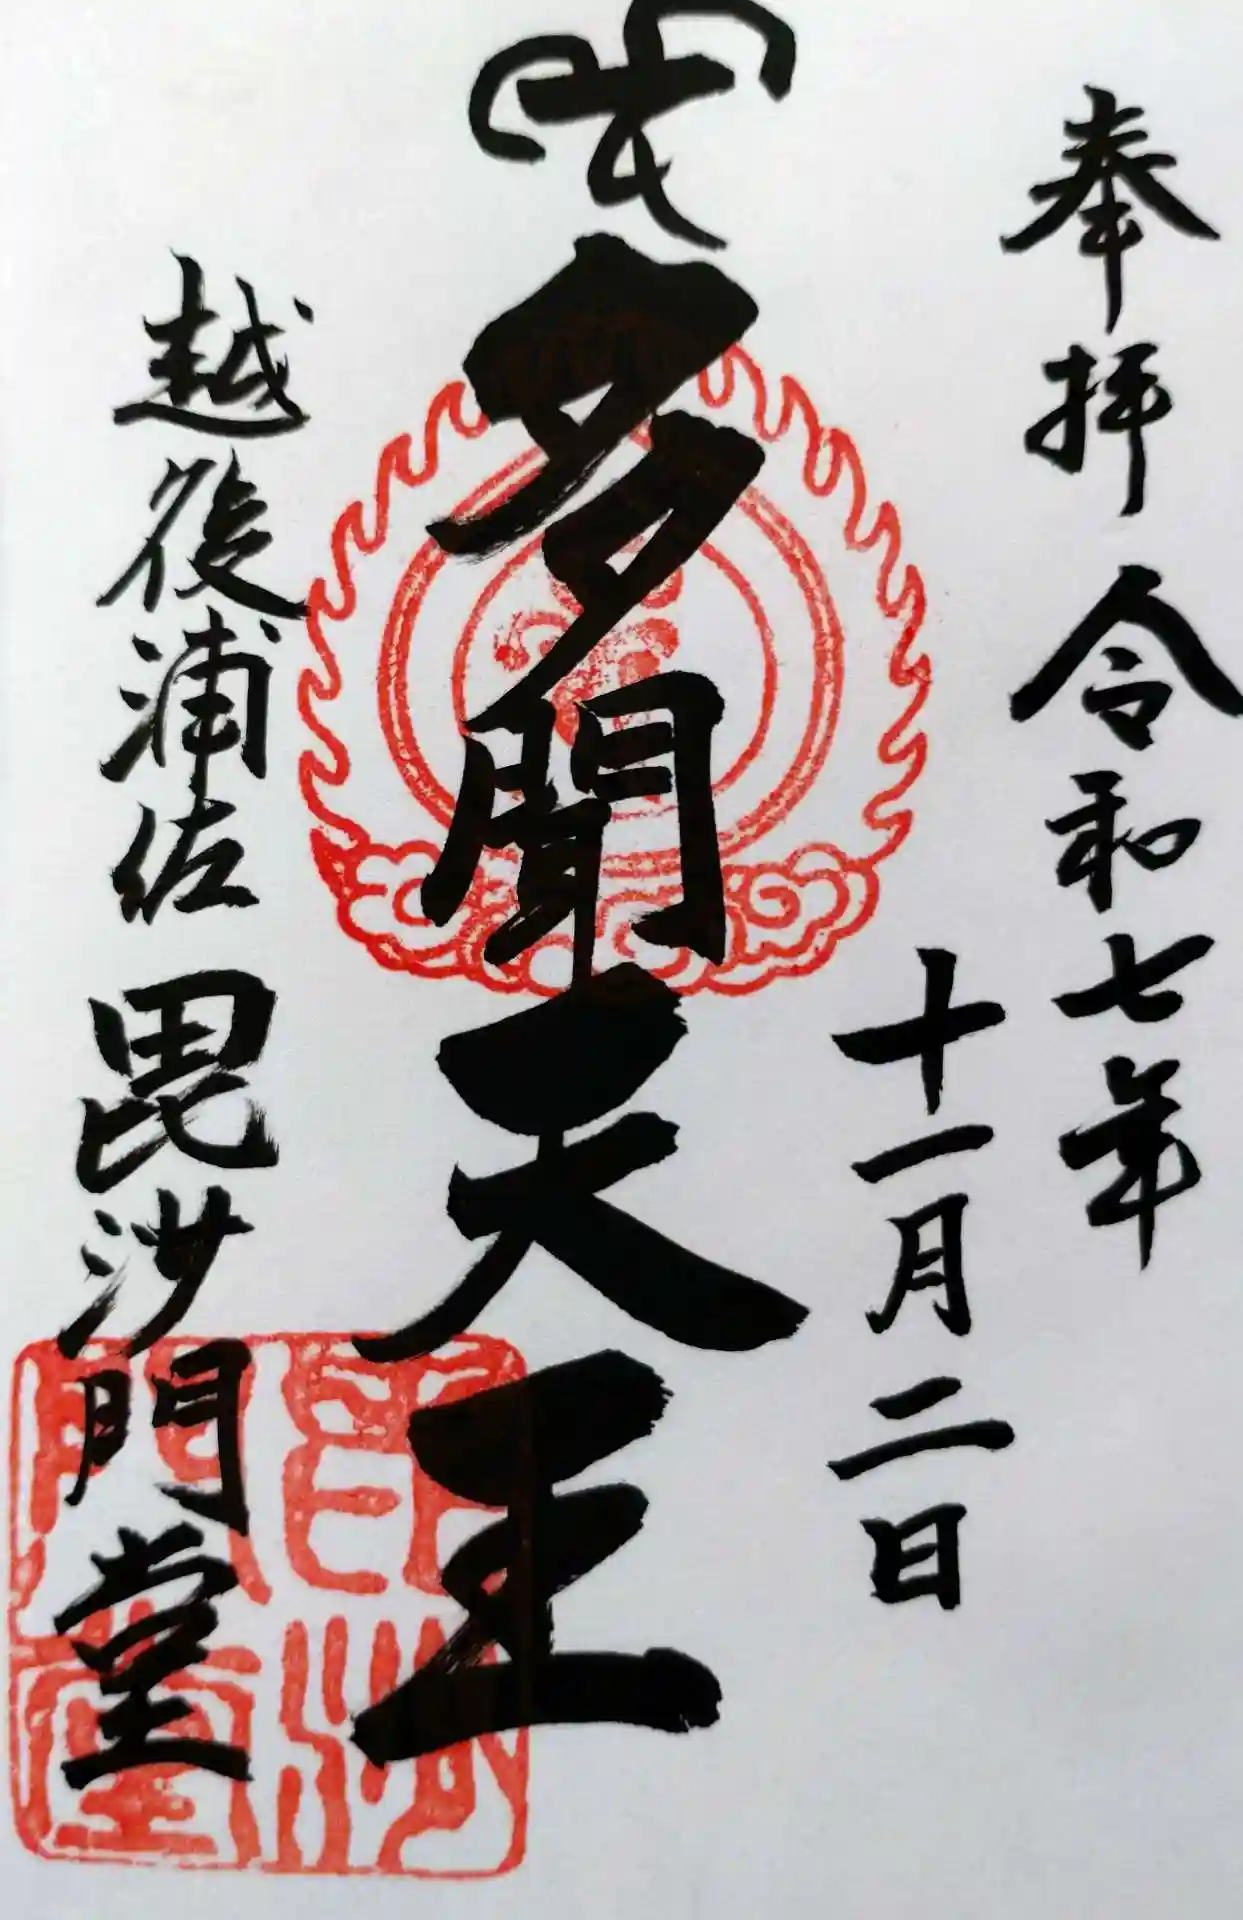 奉拝 令和七年
十一月二日
多聞天王
越後浦佐 毘沙門堂